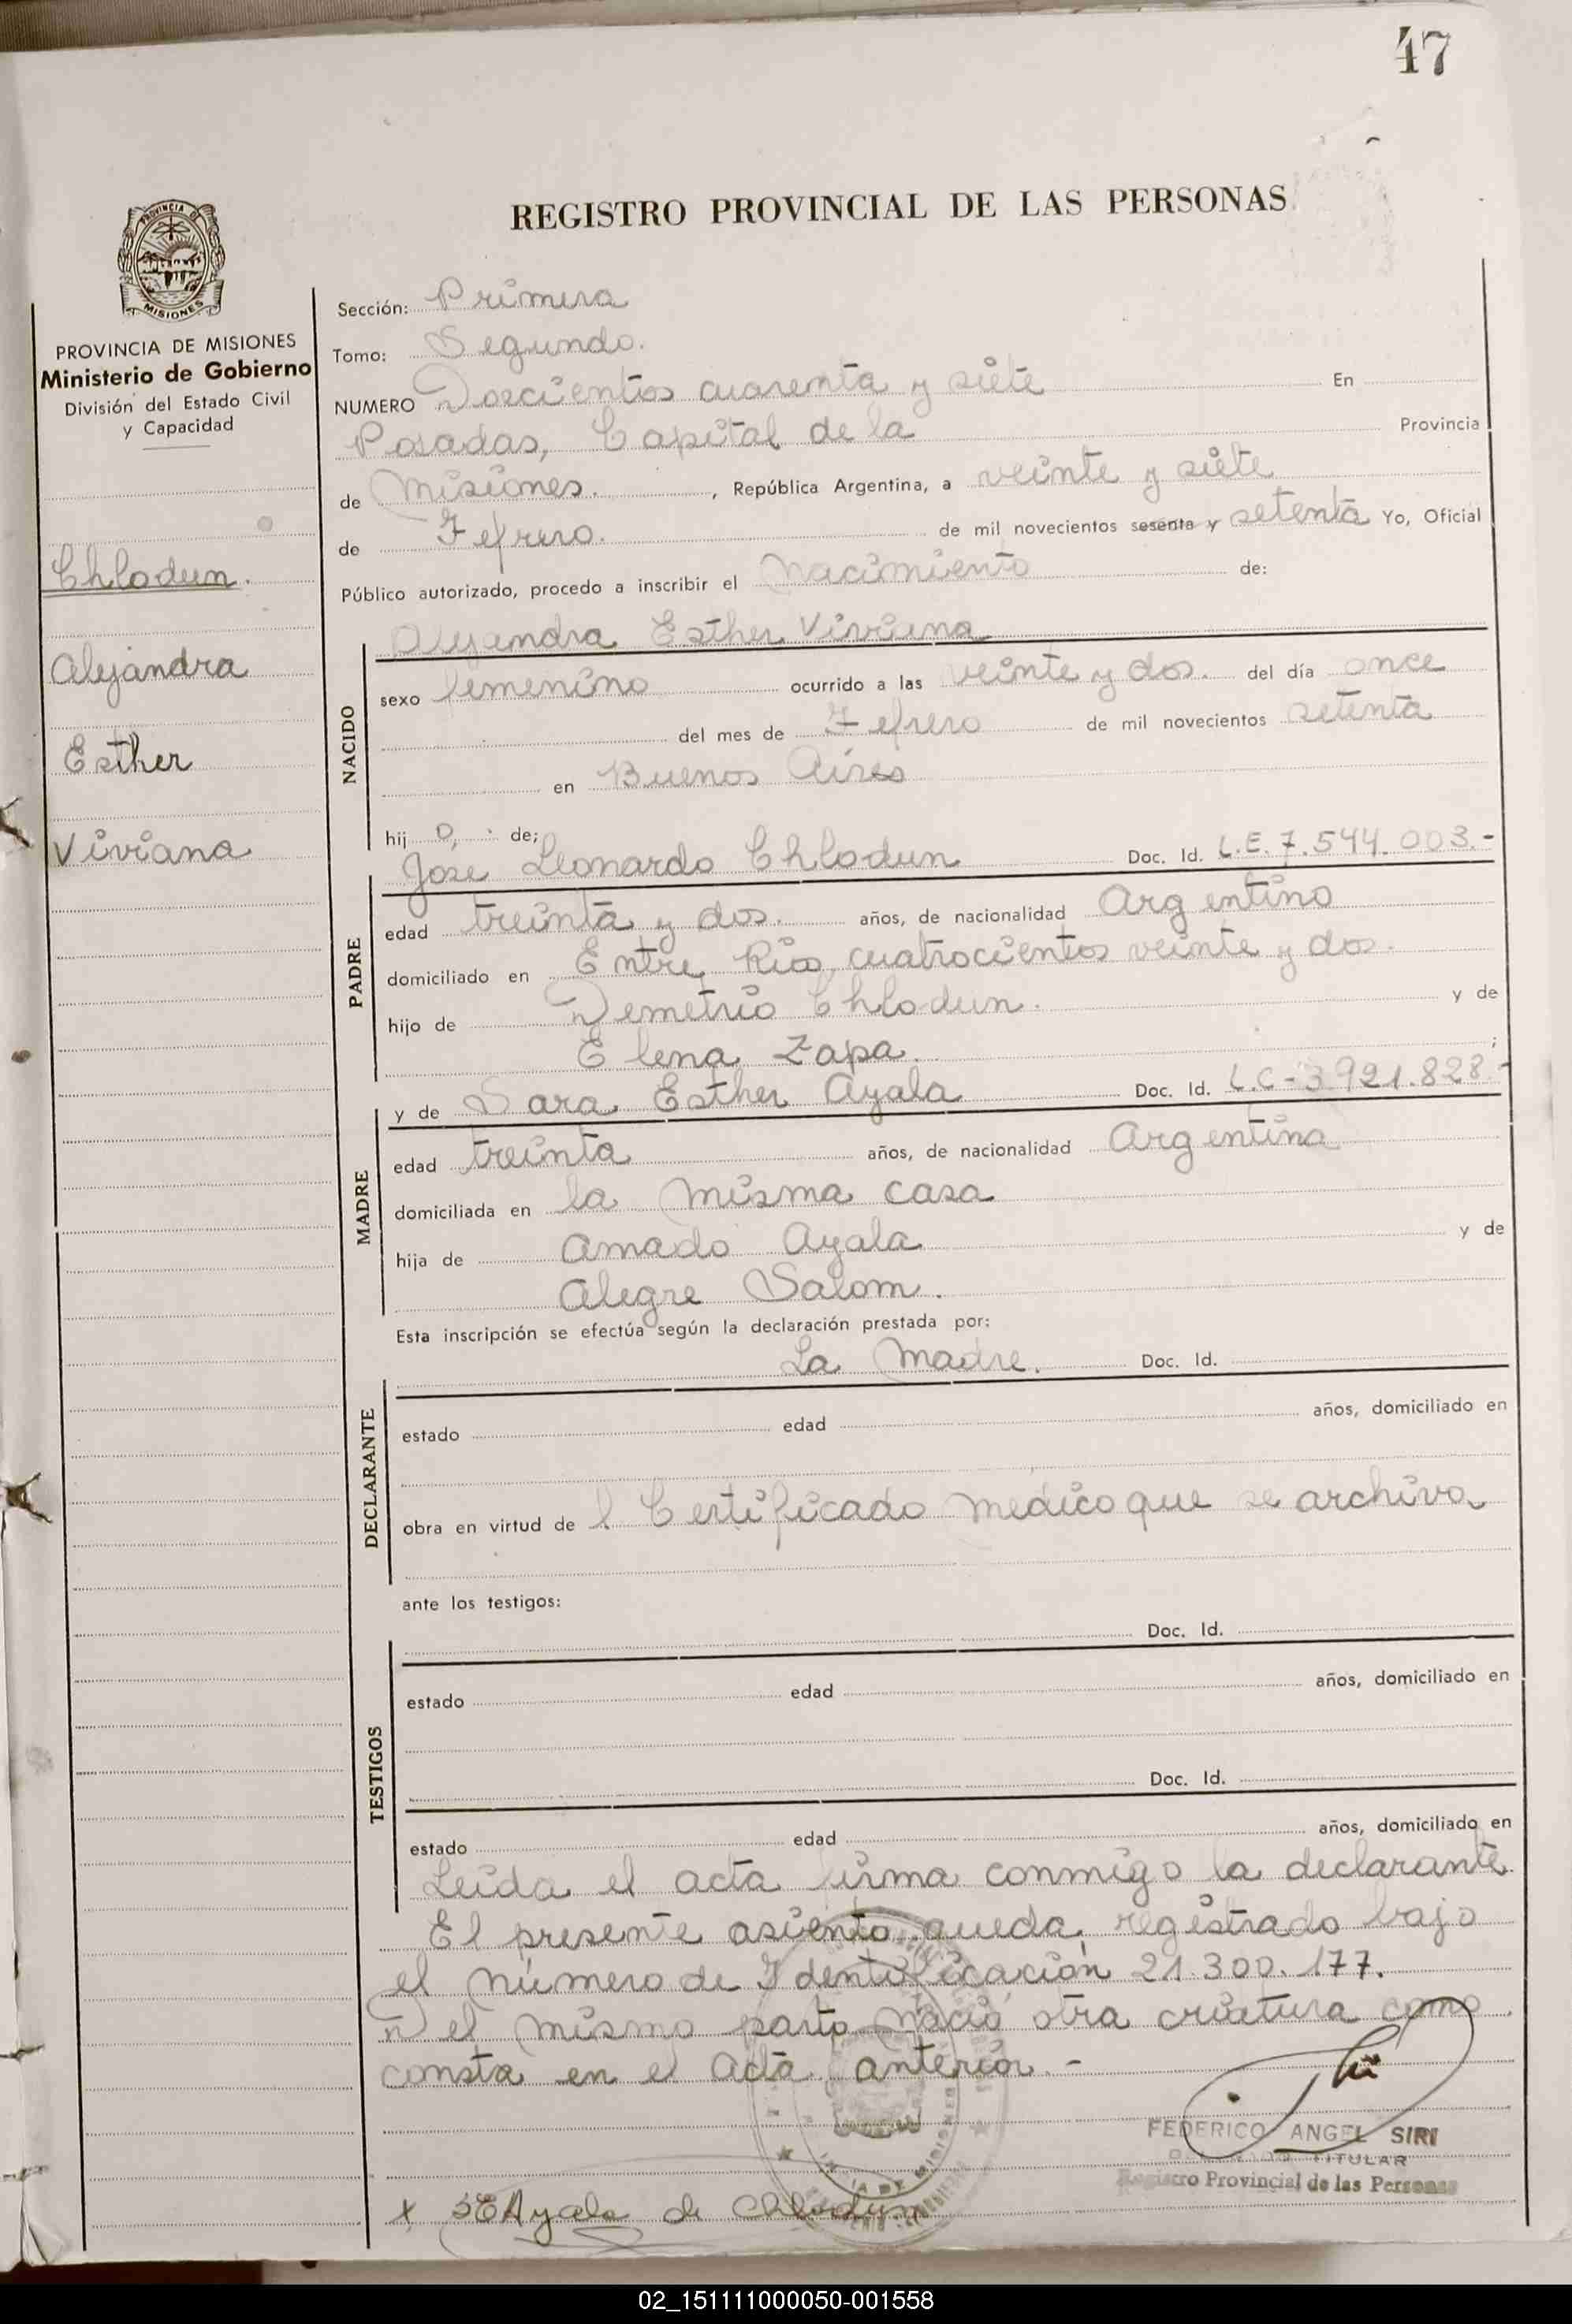 47
REGISTRO PROVINCIAL DE LAS PERSONAS
PROVINCIA DE
MISIONES
PROVINCIA DE MISIONES
Ministerio de Gobierno
División del Estado Civil
y Capacidad
Chlodun.
Alejandra
Esther
Viviana
Sección: Primera
Tomo: Segundo.
NUMERO Doscientos cuarenta y siete En
Posadas, Capital de la Provincia
de Misiones. , República Argentina, a veinte y siete
de Febrero. de mil novecientos sesenta y setenta Yo, Oficial
Público autorizado, procedo a inscribir el Nacimiento de:
NACIDO
Alejandra Esther Viviana
sexo femenino ocurrido a las veinte y dos. del día once
del mes de Febrero de mil novecientos setenta
en Buenos Aires
hij a, de;
PADRE
Jose Leonardo Chlodun Doc. Id. L.E. 7.544.003.-
edad treinta y dos. años, de nacionalidad Argentino
domiciliado en Entre Rios cuatrocientos veinte y dos.
hijo de Demetrio Chlodun. y de
Elena Zapa. ;
MADRE
y de Sara Esther Ayala Doc. Id. L.C-3.921.828.-
edad treinta años, de nacionalidad Argentina
domiciliada en la misma casa
hija de Amado Ayala y de
Alegre Salom.
Esta inscripción se efectúa según la declaración prestada por:
DECLARANTE
La Madre. Doc. Id.
estado edad años, domiciliado en
obra en virtud de l Certificado Medico que se archiva
ante los testigos:
TESTIGOS
Doc. Id.
estado edad años, domiciliado en
Doc. Id.
estado edad años, domiciliado en
Leida el acta firma conmigo la declarante.
El presente asiento queda registrado bajo
el número de Identificación 21.300.177.
n el mismo parto Nació otra criatura como
consta en el acta anterior.-
FEDERICO ANGEL SIRI
TITULAR
Registro Provincial de las Personas
x SEAyala de Chlodun
02_151111000050-001558